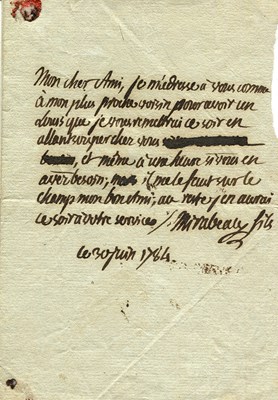 Mon cher Ami, je m'adresse à vous comme
à mon plus proche voisin pour avoir un
Louis que je vous remettrai ce soir en
allant souper chez vous
et même à une heure si vous en
avez besoin; il me le faut sur le
champ mon bon Ami; au reste j'en aurai
ce soir à votre service ./. Mirabeau fils
ce 30 juin 1784.